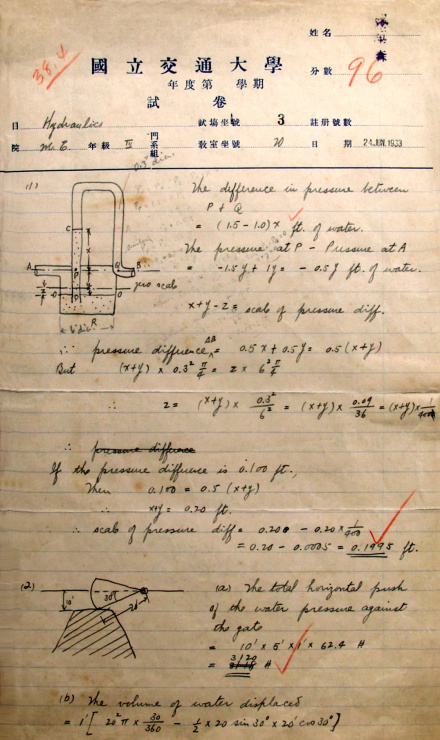 姓名
國立交通大學
38.4
分數 96
年度第 學期
試卷
目 Hydraulics 試場坐號 3 註册號數
院 M.E. 年級 IV 門系組 教室坐號 20 日期 24 JUN 1933
(1) The difference in pressure between
P & Q
= (1.5-1.0)x ft. of water.
The pressure at P - Pressure at A
= -1.5y + 1y = -0.5y ft. of water.
zero scale
x+y-z = scale of pressure diff.
∴ pressure difference AB = 0.5x + 0.5y = 0.5(x+y)
But (x+y) × 0.3² π/4 = z × 6² π/4
∴ z = (x+y) × 0.3²/6² = (x+y) × 0.09/36 = (x+y) × 1/400
∴ pressure difference
If the pressure difference is 0.100 ft.,
Then 0.100 = 0.5 (x+y)
∴ x+y = 0.20 ft.
∴ scale of pressure diff = 0.200 - 0.20 × 1/400
= 0.20 - 0.0005 = 0.1995 ft.
(2) (a) The total horizontal push
of the water pressure against
the gate
= 10' × 5' × 1' × 62.4 #
= 3120 #
30°
10'
20'
(b) The volume of water displaced
= 1' [ 20² π × 30/360 - 1/2 × 20 sin 30° × 20' cos 30° ]